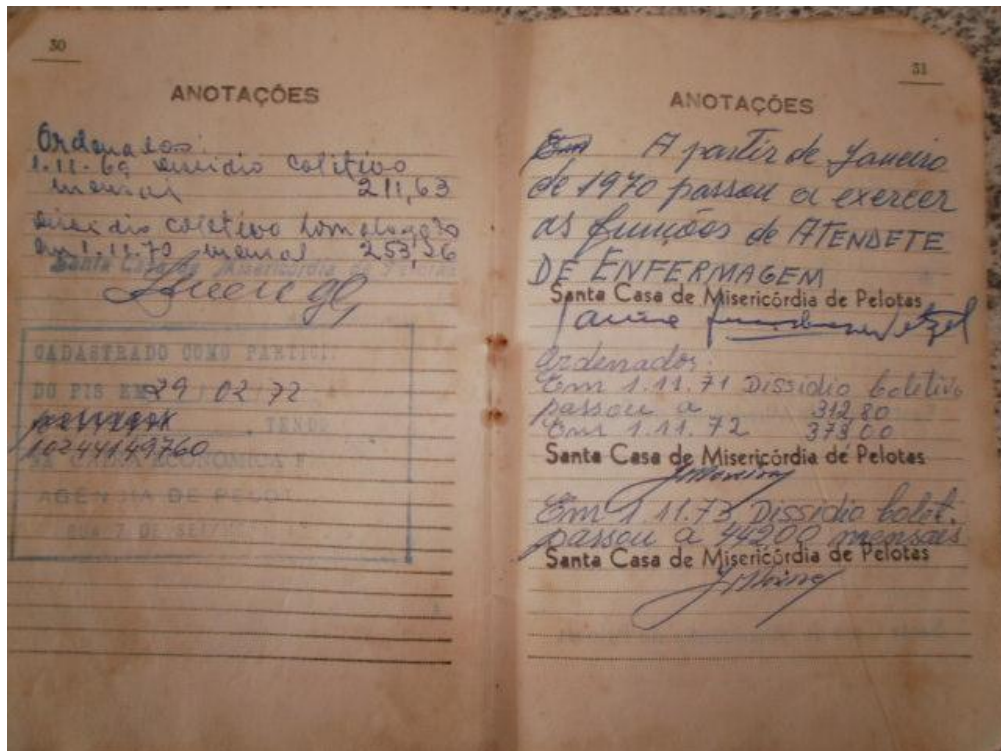 30
ANOTAÇÕES
Ordenados:
1.11.69 dissidio coletivo
mensal 211,63
dissidio coletivo homologado
em 1.11.70 mensal 253,36
Santa Casa de Misericórdia de Pelotas
CADASTRADO COMO PARTICI
DO PIS EM 29 02 72
TENDO
10244149760
NA CAIXA ECONOMICA F
AGÊNCIA DE PELOT
RUA 7 DE SETEMBRO
31
ANOTAÇÕES
A partir de Janeiro
de 1970 passou a exercer
as funções de ATENDETE
DE ENFERMAGEM
Santa Casa de Misericórdia de Pelotas
Ordenados:
Em 1.11.71 Dissidio Coletivo
passou a 312 80
Em 1.11.72 373 00
Santa Casa de Misericórdia de Pelotas
Em 1.11.73 Dissidio Colet.
passou a 44200 mensais
Santa Casa de Misericórdia de Pelotas